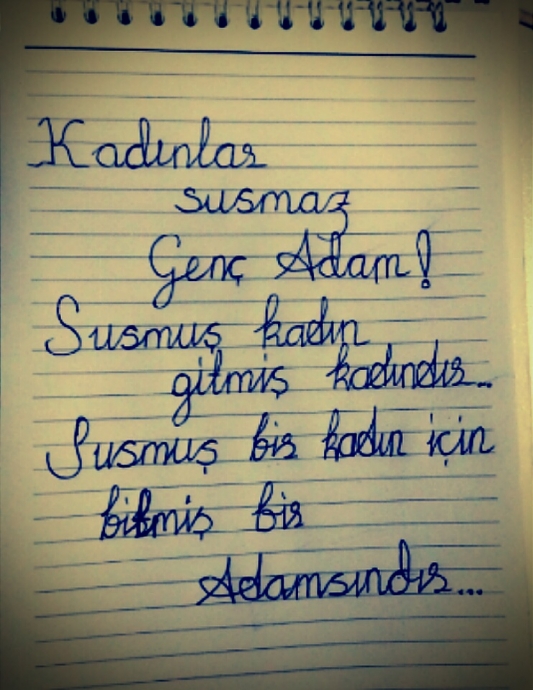 Kadınlar
susmaz
Genç Adam!
Susmuş kadın
gitmiş kadındır...
Susmuş bir kadın için
bitmiş bir
Adamsındır...